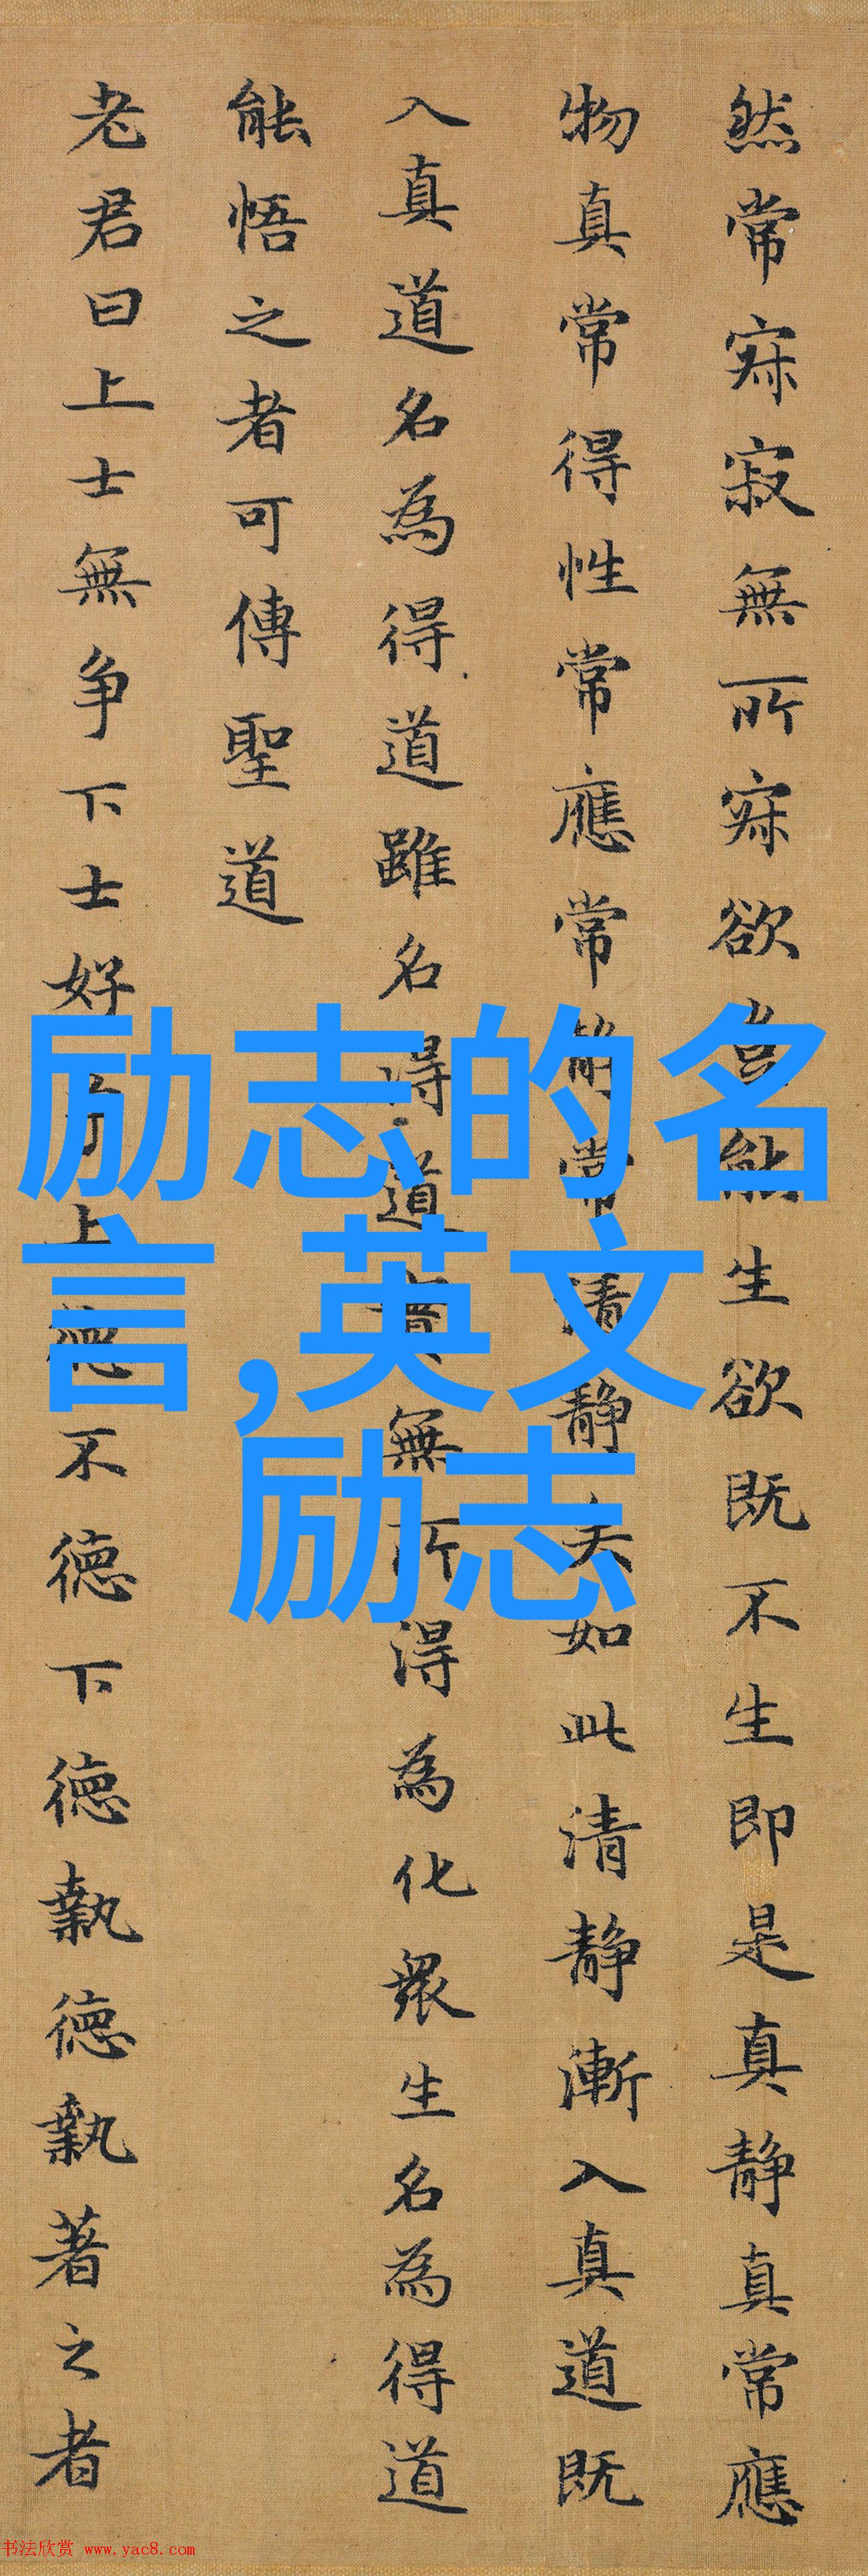 然常寂寂無所寂欲豈能生欲既不生即是真静真常應
物真常得性常應常静常清静矣如此清静漸入真道既
入真道名為得道雖名得道實無所得為化衆生名為得道
能悟之者可傳聖道
老君曰上士無争下士好争上德不德下德執德執著之者
励志的名
言,英文
励志
书法欣赏 www.yac8.com